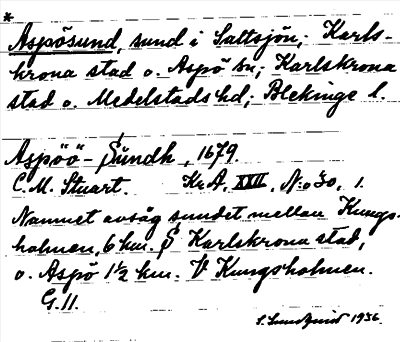 *
Aspösund, sund i Saltsjön; Karls-
krona stad o. Aspö sn; Karlskrona
stad o. Medelstads hd; Blekinge l.
Aspöö-Sundh, 1679.
C. M. Stuart. Kr.A. XXII, N:o 30, 1.
Namnet avsåg sundet mellan Kungs-
holmen, 6 km. S Karlskrona stad,
o. Aspö 1½ km. V Kungsholmen.
G. 11.
S. Lundquist 1936.